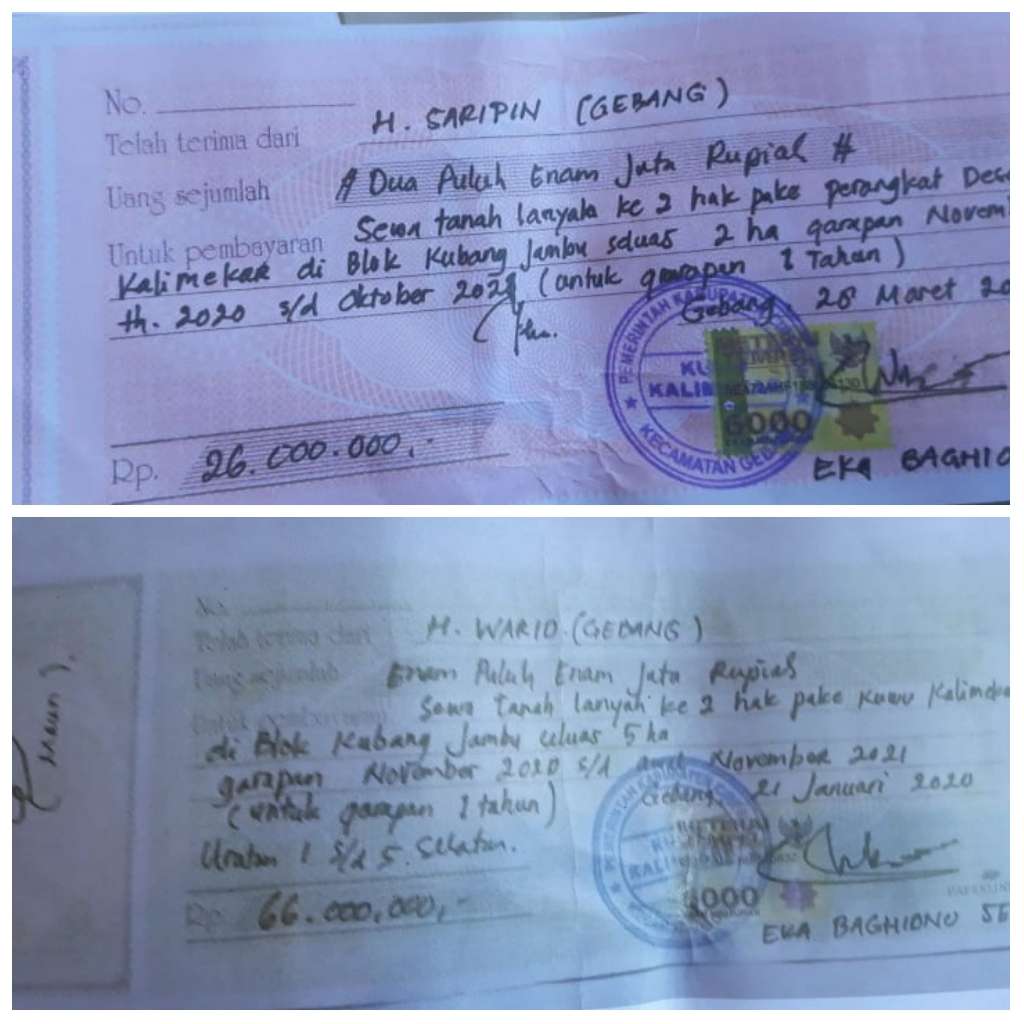 No.
Telah terima dari H. SARIPIN (GEBANG)
Uang sejumlah # Dua Puluh Enam Juta Rupiah #
Untuk pembayaran Sewa tanah lanyala ke 2 hak pake perangkat Desa
Kalimekar di Blok Kubang Jambu sduas 2 ha garapan Novem
th. 2020 s/d Oktober 2021 (untuk garapan 1 Tahun)
Gebang, 28 Maret 20
PEMERINTAH KABUPA
KU
KALIM
KECAMATAN GEBA
6000
Rp. 26.000.000,-
EKA BAGHIO
No.
Telah terima dari H. WARID (GEBANG)
Uang sejumlah Enam Puluh Enam Juta Rupiah
Untuk pembayaran Sewa Tanah lanyah ke 2 hak pake Kuwu Kalimeka
di Blok Kubang Jambu seluas 5 ha
garapan November 2020 s/d November 2021
(untuk garapan 1 tahun)
Gebang, 21 Januari 2020
1 s/d 5. Selatan.
PEMERINTAH KABUPATEN
KALI
6000
Rp. 66.000.000,-
EKA BAGHIONO SE